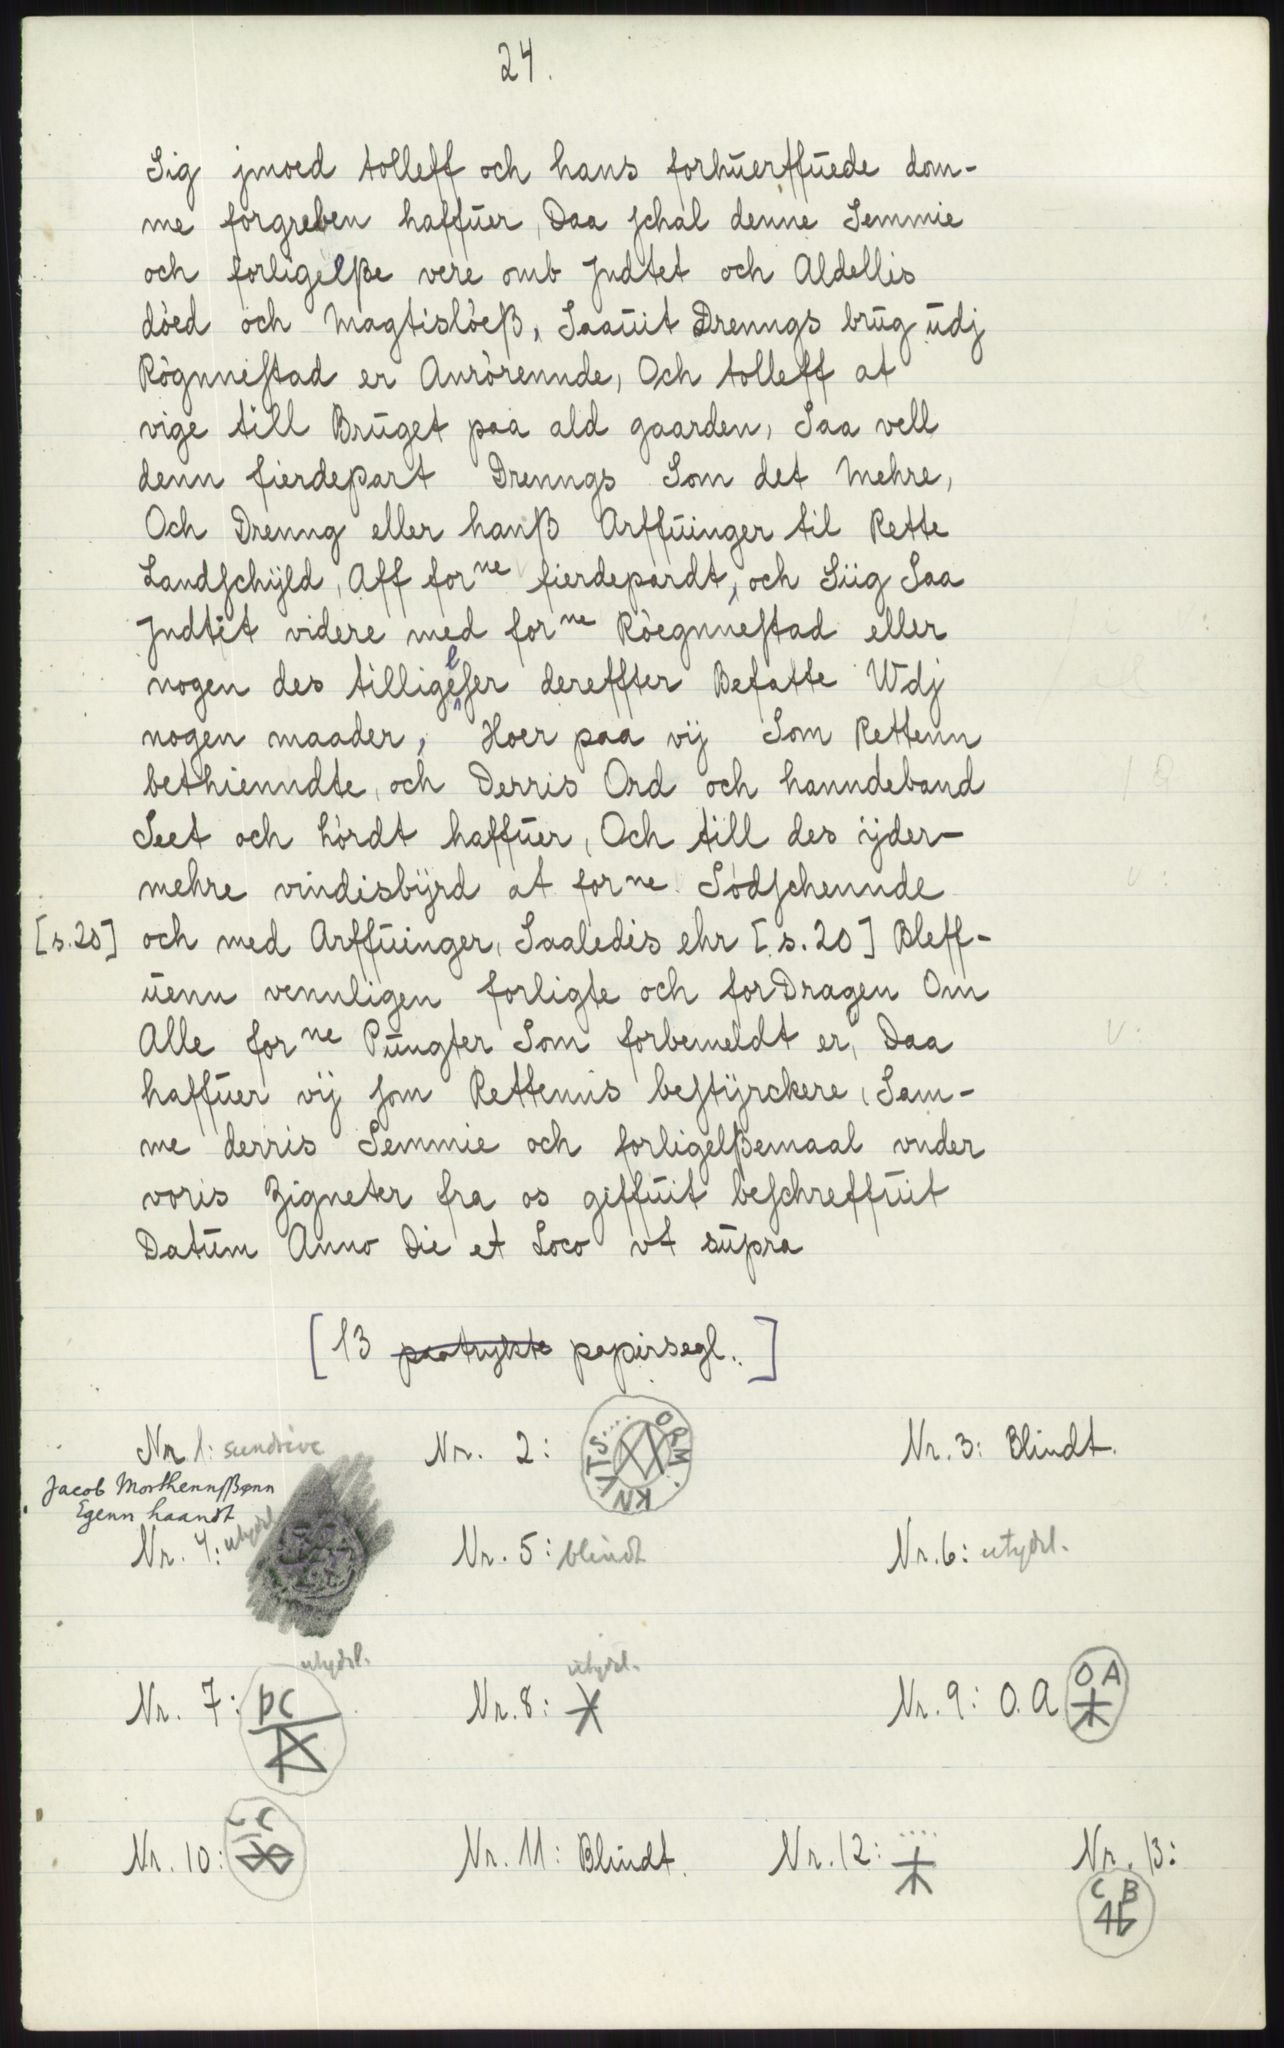 24.
Sig jmoed tolleff och hans forhuerffuede dom-
me forgreben haffuer, Daa schal denne Semmie
och forligelße vere omb Jndtet och Aldellis
döed och Magtislöeß, Saauit Drenngs brug udj
Rögnnestad er Anrörennde, Och tolleff at
vige till Bruget paa ald gaarden, Saa vell
denn fierdepart Drenngs Som det Mehre,
Och Drenng eller hanß Arffuinger til Rette
Landschÿld, Aff forne fierdepardt, och Siig Saa
Jndtet videre med forne Röegnnestad eller
nogen des tilligelser dereffter Befatte Wdj
nogen maader, Hoer paa vij Som Rettenn
bethienndte, och Derris Ord och hanndeband
Seet och hördt haffuer, Och till des ijder-
mehre vindisbÿrd at forne Södschennde
[s.20] och med Arffuinger, Saaledis ehr [s.20] Bleff-
uenn vennligen forligte och forDragen Om
Alle forne Pungter Som forbemeldt er, Daa
haffuer vij som Rettenns bestÿrckere, Sam-
me derris Semmie och forligelßemaal vnder
voris Zigneter fra os giffuit beschreffuit
Datum Anno Die et Loco vt supra
[13 paatrykte papirsegl.]
Nr. 1: sundrive Nr. 2: ORM. KNVTS.... Nr. 3: Blindt.
Jacob Morthennßønn
Egenn haandt
Nr. 4: utydel. Nr. 5: blindt Nr. 6: utydel.
Nr. 7: PC utydel. Nr. 8: utydel. Nr. 9: O.A OA
Nr. 10: CC Nr. 11: Blindt. Nr. 12: .... Nr. 13:
C B